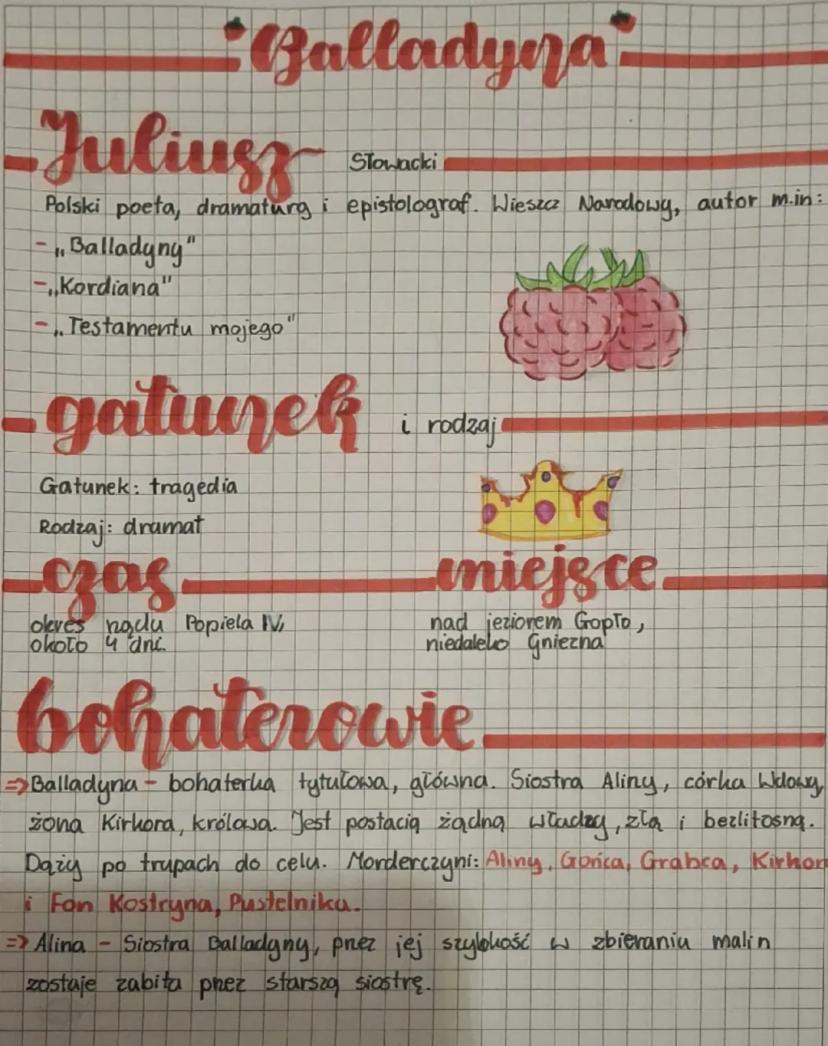 Balladyna
Juliusz Słowacki
Polski poeta, dramaturg i epistolograf. Wieszcz Narodowy, autor m.in:
- „Balladyny"
- „Kordiana"
- „Testamentu mojego"
gatunek i rodzaj
Gatunek: tragedia
Rodzaj: dramat
czas
okres rządu Popiela IV,
około 4 dni.
miejsce
nad jeziorem Gopło,
niedaleko Gniezna
bohaterowie
⇒ Balladyna - bohaterka tytułowa, główna. Siostra Aliny, córka Wdowy,
żona Kirkora, królowa. Jest postacią żądną władzy, zła i bezlitosną.
Dąży po trupach do celu. Morderczyni: Aliny, Gońca, Grabca, Kirkora
i Fon Kostryna, Pustelnika.
⇒ Alina - Siostra Balladyny, przez jej szybkość w zbieraniu malin
zostaje zabita przez starszą siostrę.